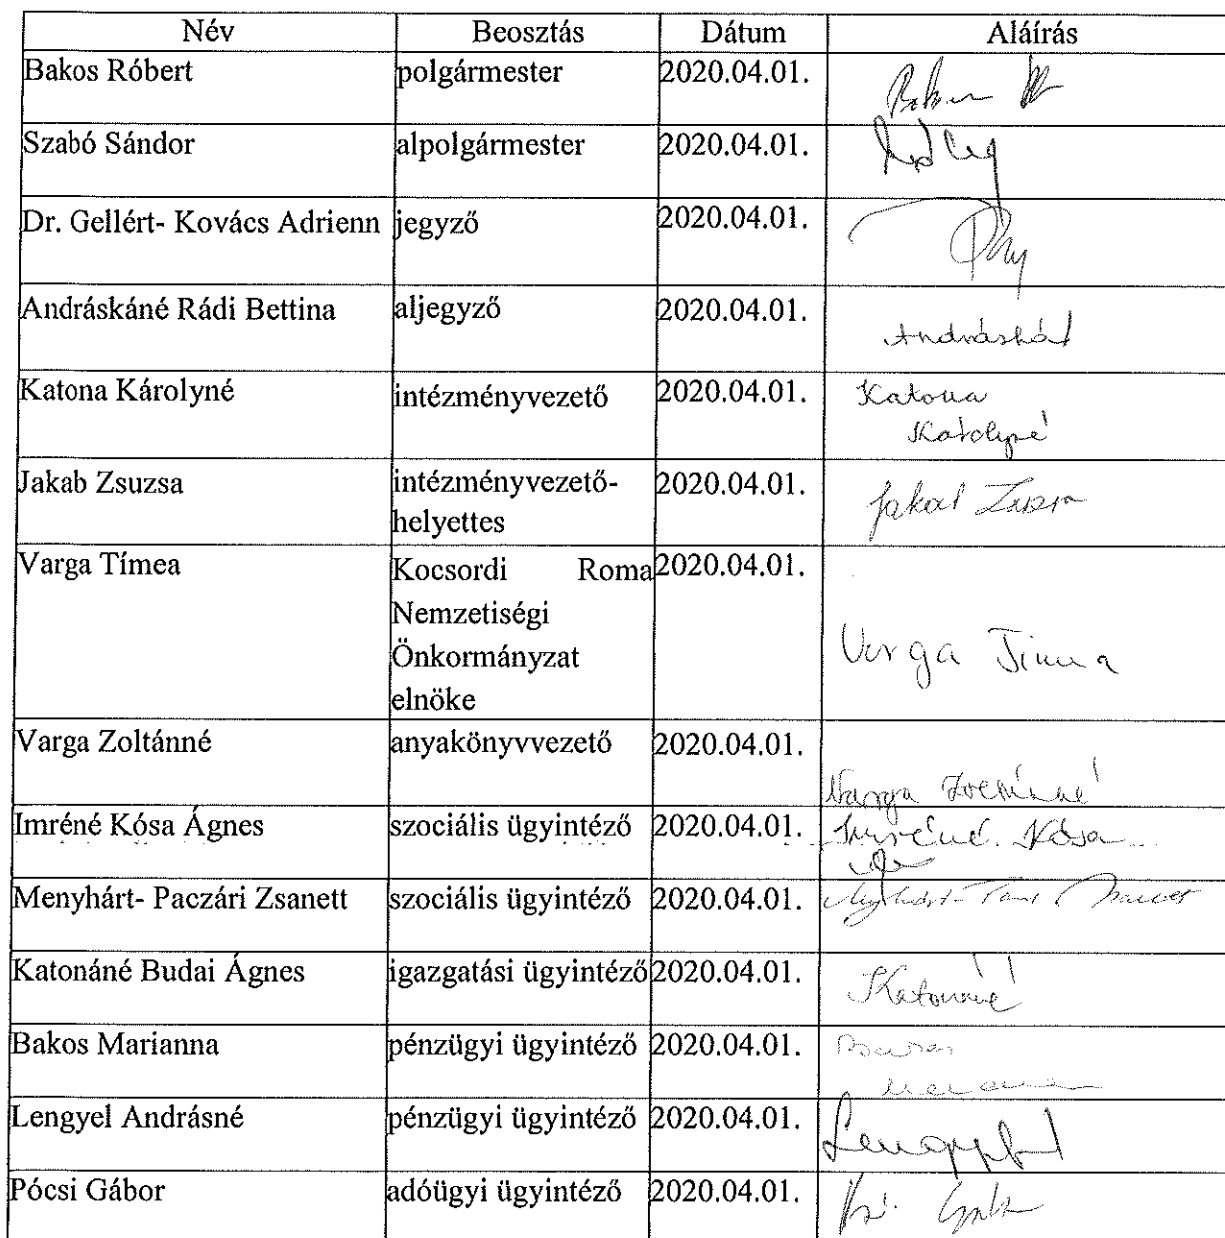 Név Beosztás Dátum Aláírás
Bakos Róbert polgármester 2020.04.01.
Szabó Sándor alpolgármester 2020.04.01.
Dr. Gellért- Kovács Adrienn jegyző 2020.04.01.
Andráskáné Rádi Bettina aljegyző 2020.04.01.
Katona Károlyné intézményvezető 2020.04.01. Katona
Károlyné
Jakab Zsuzsa intézményvezető- 2020.04.01. Jakab Zsuzsa
helyettes
Varga Tímea Kocsordi Roma 2020.04.01.
Nemzetiségi
Önkormányzat Varga Tímea
elnöke
Varga Zoltánné anyakönyvvezető 2020.04.01.
Varga Zoltánné
Imréné Kósa Ágnes szociális ügyintéző 2020.04.01. Imréné Kósa
Menyhárt- Paczári Zsanett szociális ügyintéző 2020.04.01.
Katonáné Budai Ágnes igazgatási ügyintéző 2020.04.01. Katonáné
Bakos Marianna pénzügyi ügyintéző 2020.04.01.
Lengyel Andrásné pénzügyi ügyintéző 2020.04.01.
Pócsi Gábor adóügyi ügyintéző 2020.04.01.